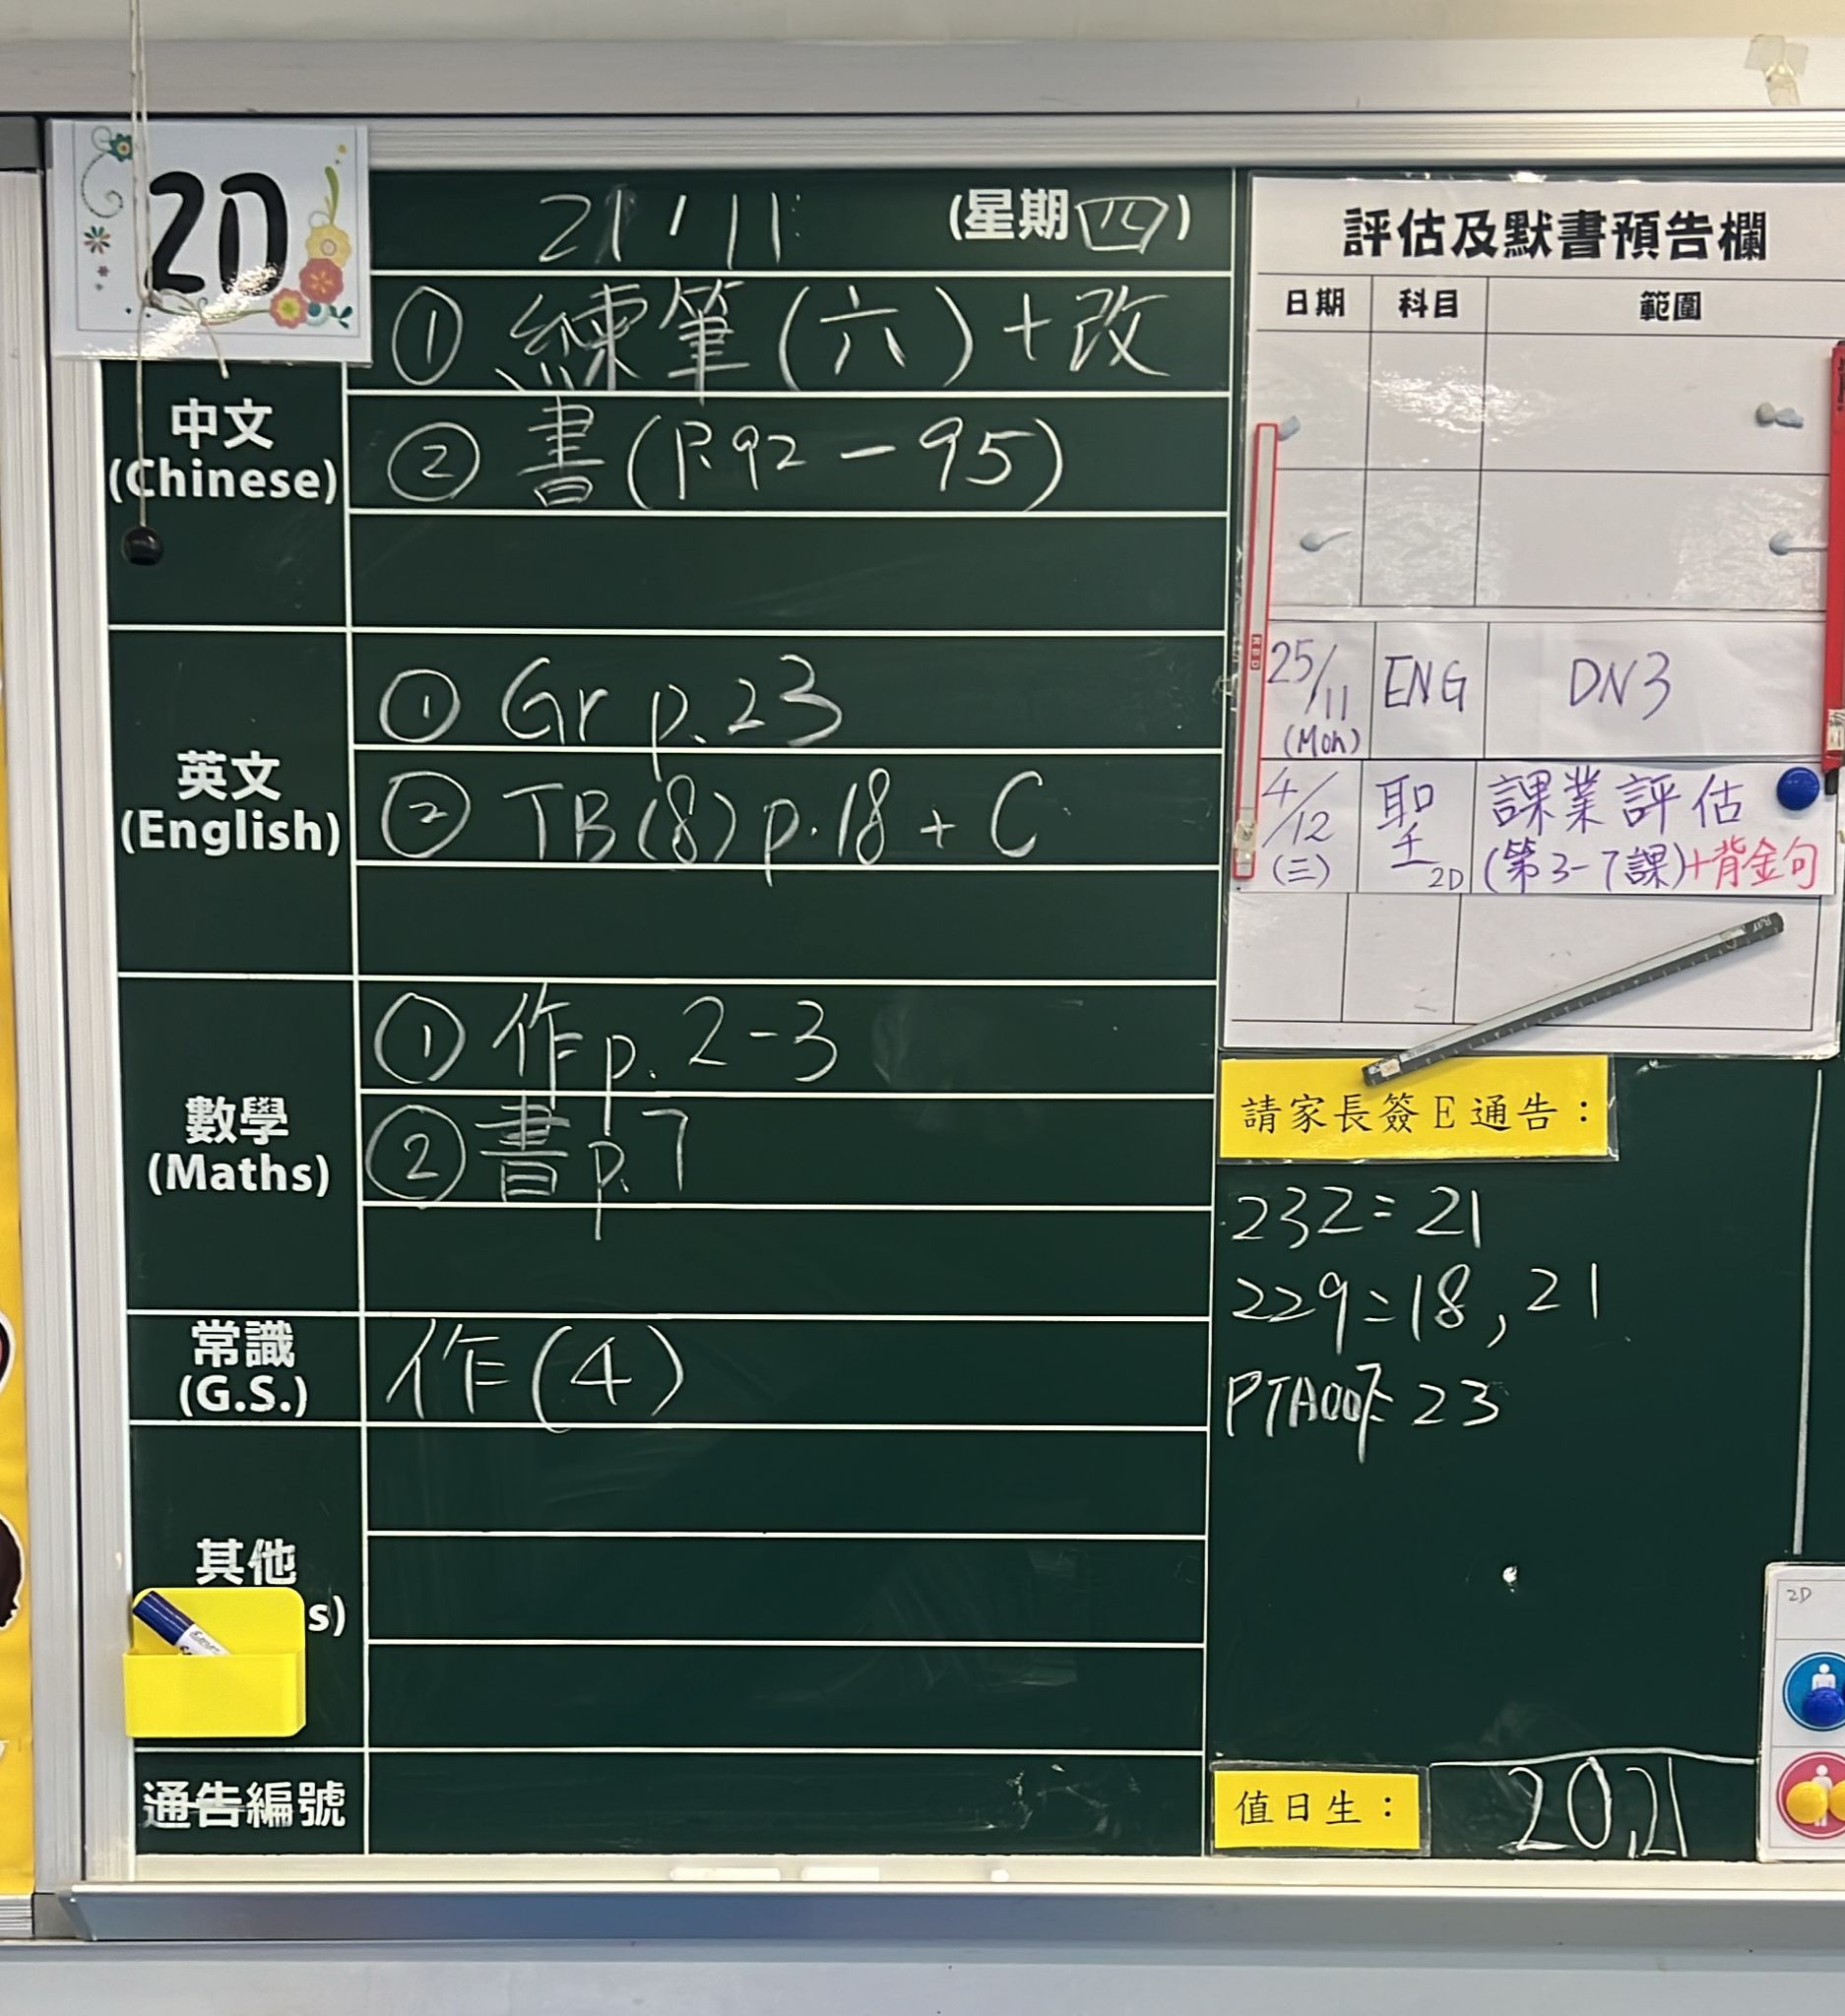 2D
21 / 11 (星期四)
中文
(Chinese)
① 練筆(六)+改
② 書(P.92-95)
英文
(English)
① Gr p.23
② TB(8) p.18 + C
數學
(Maths)
① 作p. 2-3
② 書p.7
常識
(G.S.)
作(4)
其他
s)
通告編號
評估及默書預告欄
日期 科目 範圍
25/11 (Mon) ENG DN3
4/12 (三) 聖 2D 課業評估
(第3-7課)+背金句
請家長簽E通告：
232=21
229=18, 21
PTA007= 23
值日生： 20,21
2D